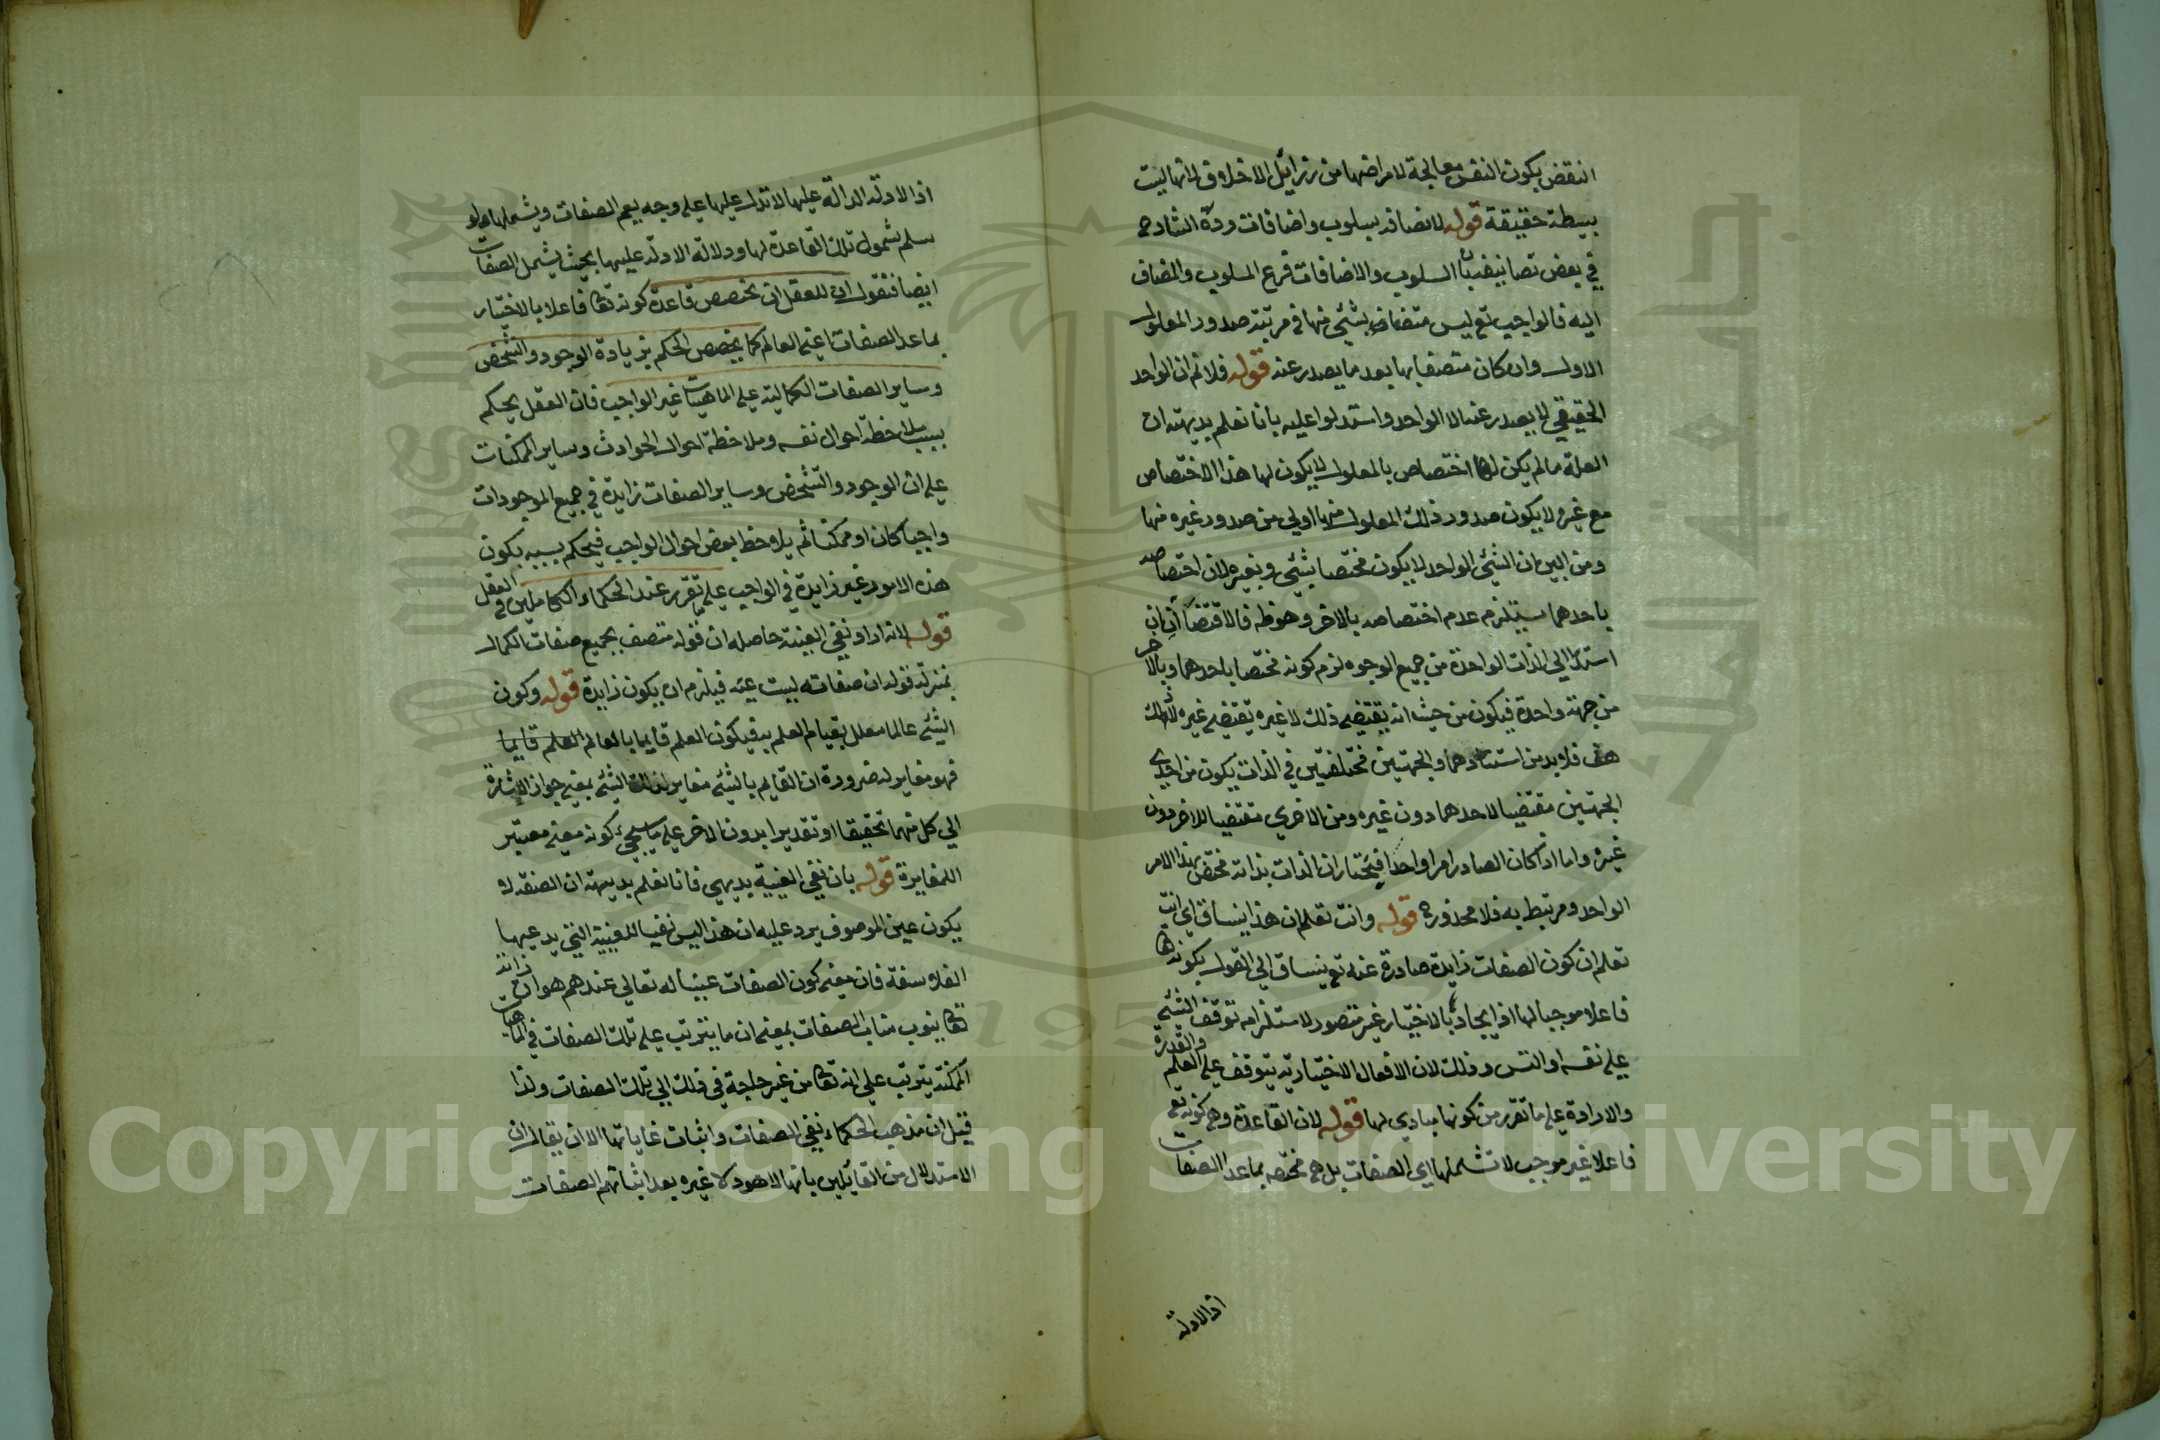 النقض بكون النفس معالجة لامراضها من رزايل الاخلاق لانها ليست
بسيطة حقيقة قوله لاتصافه بسلوب واضافات ورده الشارح
في بعض تصانيفه بان السلوب والاضافات فرع المسلوب والمضاف
اليه فالواجب تع ليس متصفا بشئ منها في مرتبة صدور المعلول
الاول وان كان متصفا بها بعد ما يصدر عنه قوله فلانم ان الواحد
الحقيقي لا يصدر عنه الا الواحد واستدلوا عليه بانا نعلم بديهة ان
العلة ما لم يكن لها اختصاص بالمعلول لا يكون لها هذا الاختصاص
مع غيره لا يكون صدور ذلك المعلول منها اولي من صدور غيره منها
ومن البين ان الشئ الواحد لا يكون مختصا بشئ وبغيره لان اختصاصه
باحدهما يستلزم عدم اختصاصه بالاخر وهو ظه فالاقتضاآن ان
استندا الي الذات الواحدة من جميع الوجوه لزم كونه مختصا باحدهما وبالاخر
من جهة واحدة فيكون من حيث انه يقتضي ذلك لا غيره يقتضي غيره لا ذلك
هف فلا بد من استنادهما والجهتين مختلفتين في الذات يكون من احدي
الجهتين مقتضيا لاحدهما دون غيره ومن الاخري مقتضيا للاخر دون
غيره واما اذا كان الصادر امرا واحدا فيختار ان الذات بذاته مختص بهذا الامر
الواحد ومرتبط به فلا محذور ح قوله وانت تعلم ان هذا ينساق اي انت
تعلم ان كون الصفات زايدة صادرة عنه تع ينساق الي القول بكونه تعا
فاعلا موجبا لها اذ ايجاده بالاختيار غير متصور لاستلزامه توقف الشئ
علي نفسه او التس وذلك لان الافعال الاختيارية يتوقف علي العلم والقدرة
والارادة علي ما تقرر من كونها مبادي لها قوله لان القاعدة وهي كونه تع
فاعلا غير موجب لا تشملها اي الصفات بل هي مختصه بماعدا الصفات
اذ الادلة
اذ الادلة الدالة عليها لا تدل عليها علي وجه يعم الصفات ويشملها ولو
سلم شمول تلك القاعدة لها ودلالة الادلة عليها بحيث يشمل الصفات
ايضا فنقول ان للعقل ان يخصص قاعدة كونه تعا فاعلا بالاختيار
بماعدا الصفات اعني العالم كما يخصص الحكم بزيادة الوجود والتشخص
وساير الصفات الكمالية علي الماهيات غير الواجب فان العقل يحكم
بسبب ملاحظة احوال نفسه وملاحظة احوال الحوادث وساير الممكنات
علي ان الوجود والتشخص وساير الصفات زايدة في جميع الموجودات
واجبا كان او ممكنا ثم يلاحظ بعض احوال الواجب فيحكم بسببه بكون
هذه الامور غير زايدة في الواجب علي تقرر عند الحكماء الكاملين في العقل
قوله لانه اراد نفي العينية حاصله ان قوله متصف بجميع صفات الكمال
بمنزلة قوله ان صفاته ليست عينه فيلزم ان يكون زايدة قوله وكون
الشئ عالما معلل بقيام العلم به فيكون العلم قايما بالعالم العلم قايما
فهو مغاير له ضرورة ان القايم بالشئ مغاير لذلك الشئ بمعني جواز الاشارة
الي كل منهما تحقيقا او تقديرا بدون الاخر علي ما سيجئ كونه معني معتبر
للمغايرة قوله بان نفي العينية بديهي فانا نعلم بديهة ان الصفة لا
يكون عين الموصوف يرد عليه ان هذا ليس نفيا للعينية التي يدعيها
الفلاسفة فان معني كون الصفات عينا له تعالي عندهم هو ان ذاته
تعا ينوب مناب الصفات بمعني ان ما يترتب علي تلك الصفات في الماهيات
الممكنة يترتب علي انه تعا من غير حاجة في ذلك الي تلك الصفات ولذا
قيل ان مذهب الحكماء نفي الصفات واثبات غاياتها الا ان يقال ان
الاستدلال من القايلين بانها لا هو ولا غيره بعد اثباتهم الصفات
Copyright © King Saud University